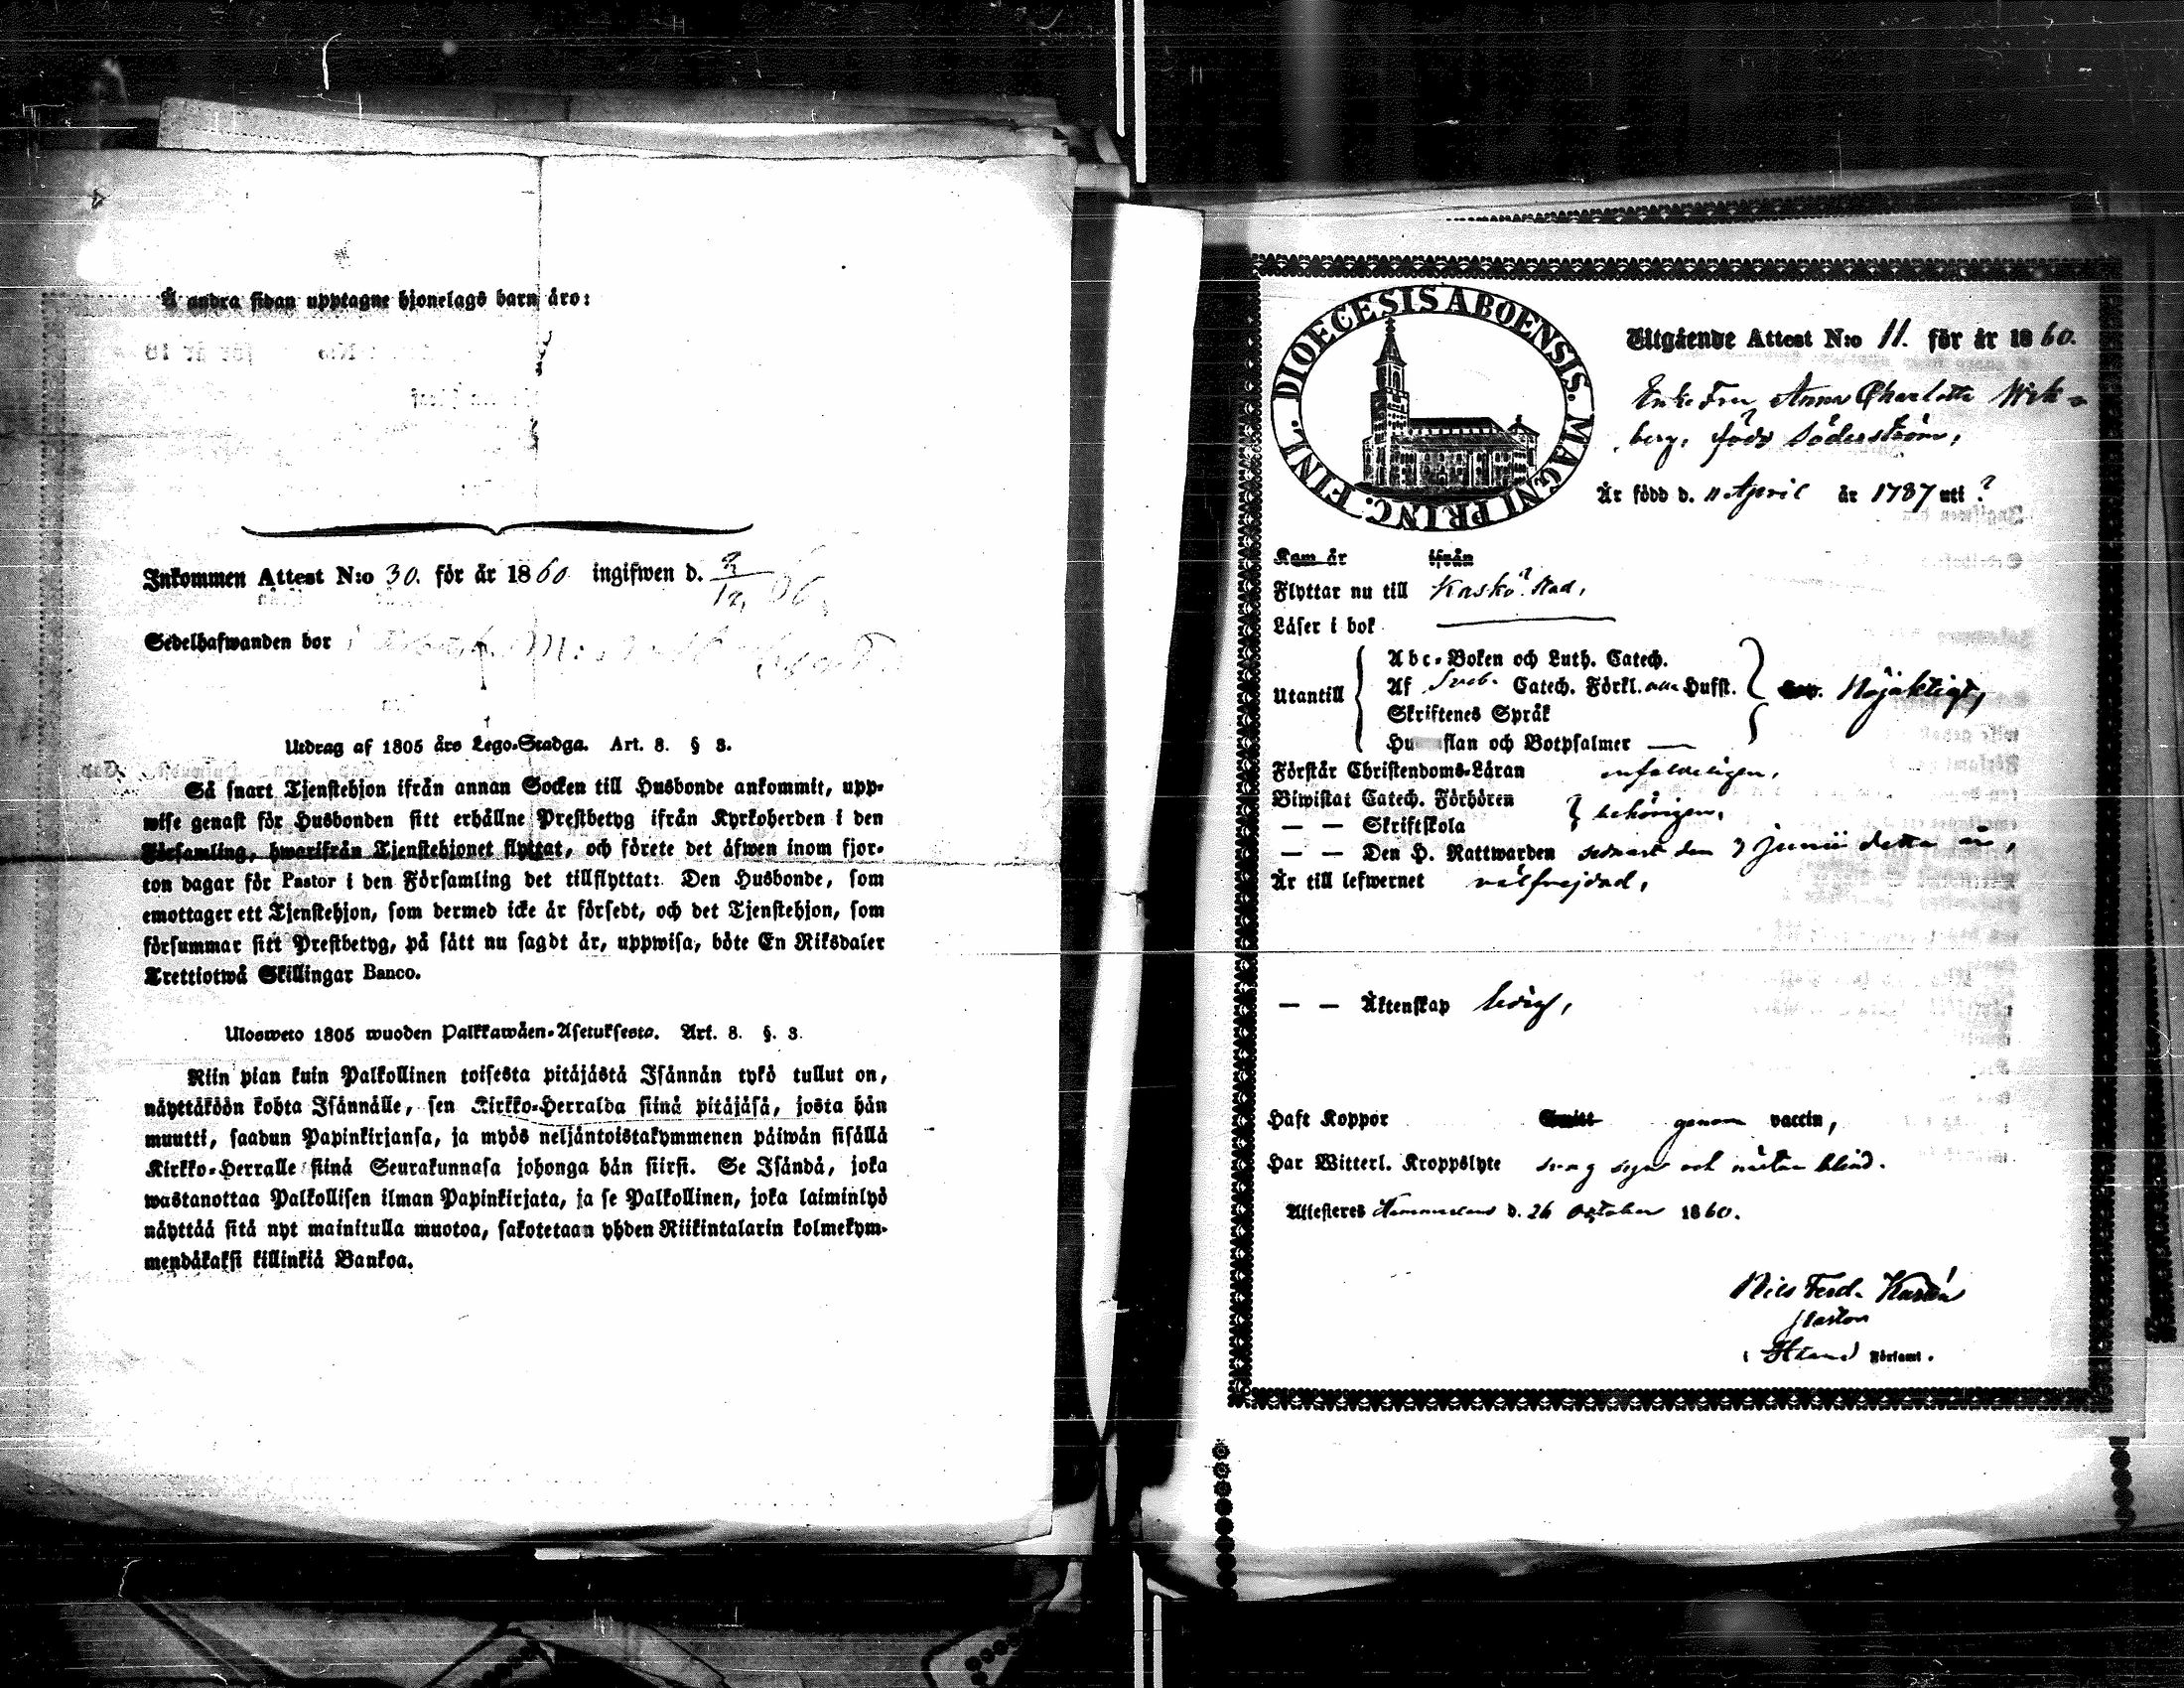 Å andra sidan upptagne hjonelags barn äro:
Inkommen Attest N:o 30. för år 1860 ingifwen d. 2/12
Sedelhafwanden bor i
Utdrag af 1805 års Lego-Stadga. Art. 8. § 3.
Så snart Tjenstehjon ifrån annan Socken till Husbonde ankommit, upp-
wise genast för Husbonden sitt erhållne Prestbetyg ifrån Kyrkoherden i den
Församling, hwarifrån Tjenstehjonet flyttat, och förete det äfwen inom fjor-
ton dagar för Pastor i den Församling det tillflyttat: Den Husbonde, som
emottager ett Tjenstehjon, som dermed icke är försedt, och det Tjenstehjon, som
försummar sitt Prestbetyg, på sätt nu sagdt är, uppwisa, böte En Riksdaler
Trettiotwå Skillingar Banco.
Ulosweto 1805 wuoden Palkkawäen-Asetuksesta. Art. 8. §. 3.
Niin pian kuin Palkollinen toisesta pitäjästä Isännän tykö tullut on,
näyttäköön kohta Isännälle, sen Kirkko-Herralda siinä pitäjäsä, josta hän
muutti, saadun Papinkirjansa, ja myös neljäntoistakymmenen päiwän sisällä
Kirkko-Herralle siinä Seurakunnasa johonga hän siirsi. Se Isändä, joka
wastanottaa Palkollisen ilman Papinkirjata, ja se Palkollinen, joka laiminlyö
näyttää sitä nyt mainitulla muotoa, sakotetaan yhden Riikintalarin kolmekym-
mendäkaksi killinkiä Bankoa.
DIOECESIS ABOENSIS. MAGNI PRINC. FINL.
Utgående Attest N:o 11. för år 1860.
Enke Fru Anna Charlotta Wik=
berg, född Söderström,
Är född d. 11 April år 1787 uti ?
Kom år ifrån
Flyttar nu till Kaskö Stad,
Läser i bok
Utantill
Abc-Boken och Luth. Catech.
Af Sveb. Catech. Förkl. Hufst.
Skriftenes Språk
Hustaflan och Botpsalmer
Nöjaktigt,
Förstår Christendoms-Läran enfaldeligen,
Biwistat Catech. Förhören
— — Skriftskola
behörigen,
— — Den H. Nattwarden sednast den 3 Junii detta år,
Är till lefwernet välfrejdad,
— — Äktenskap ledig,
Haft Koppor Smitt genom vaccin,
Har Witterl. Kroppslyte svag syn och nästan blind.
Attesteras Hammarland d. 26 October 1860.
Nils Ferd.
Pastor
i Församl.